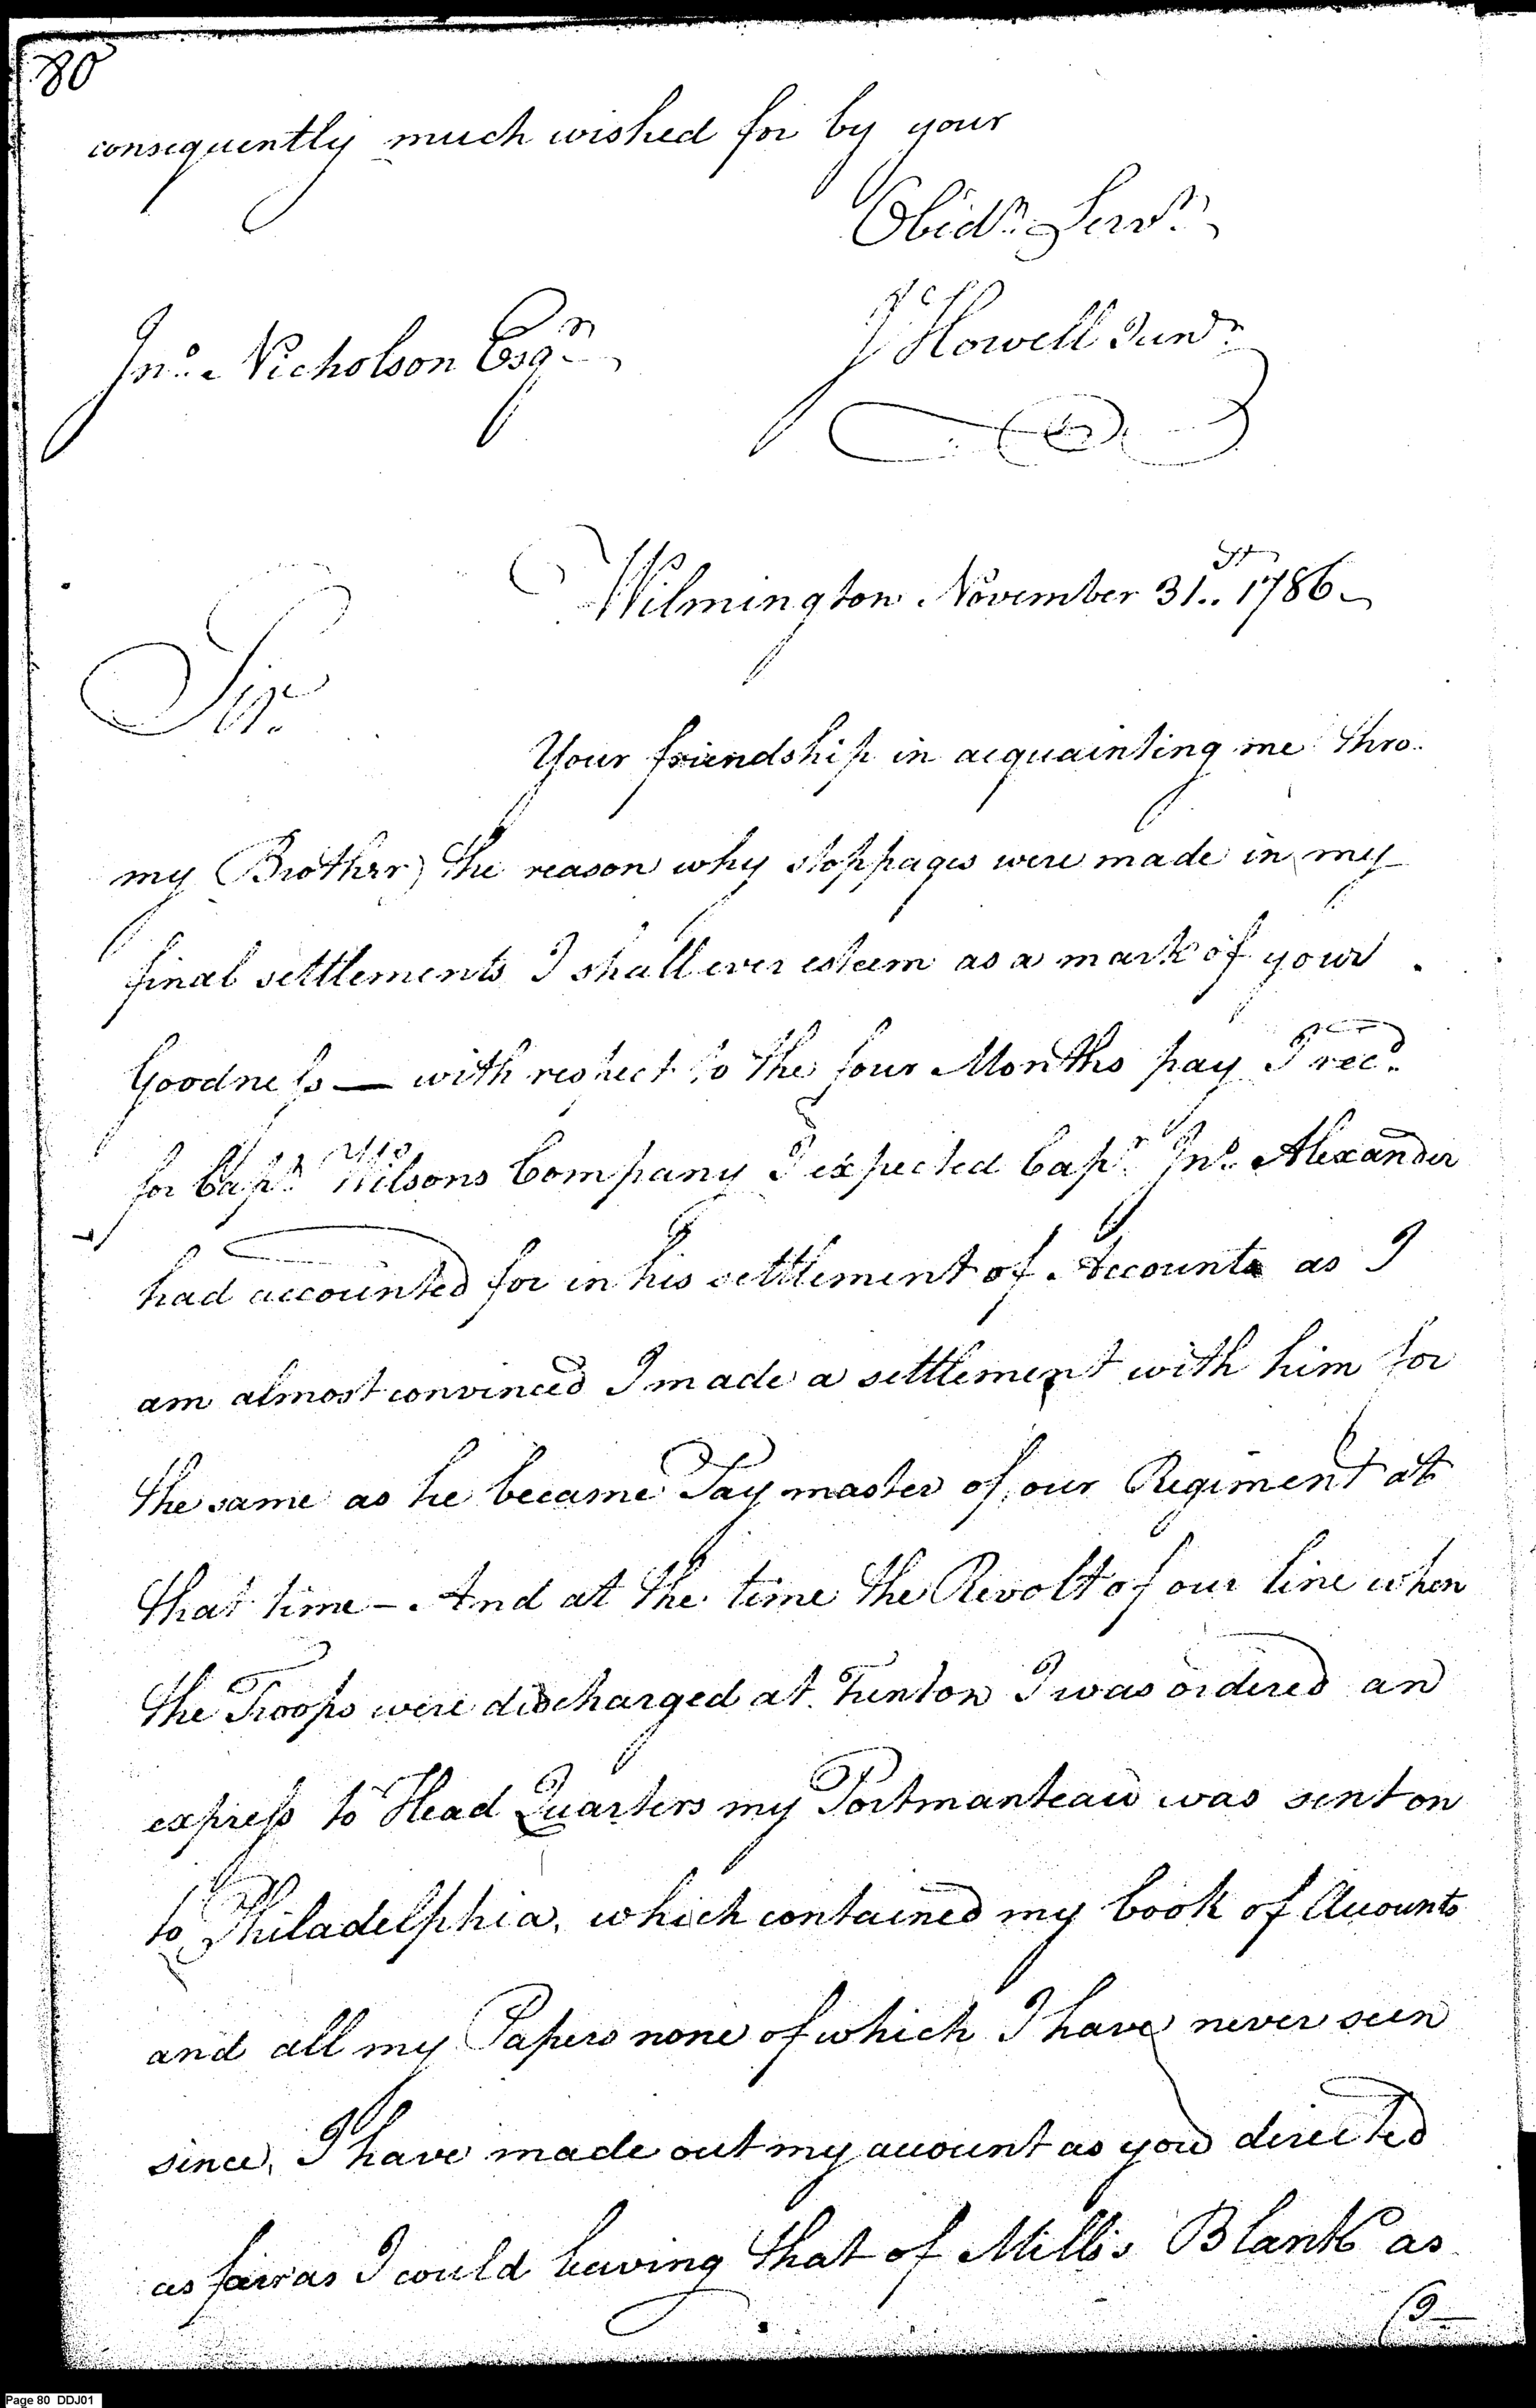 80
consequently much wished for by your
Obidt. Servt.
J Howell Junr.
Jno. Nicholson Esqr.
Wilmington November 31st. 1786
Sir.
Your friendship in acquainting me thro.
my Brother, the reason why stoppages were made in my
final settlements I shall ever esteem as a mark of your
Goodness — with respect to the four Months pay I recd.
for Capt. Wilsons Company I expected Capt. Jno. Alexander
had accounted for in his settlement of Accounts as I
am almost convinced I made a settlement with him for
the same as he became Paymaster of our Regiment at
that time – And at the time the Revolt of our line when
the Troops were discharged at Trenton I was ordered an
express to Head Quarters my Portmanteau was sent on
to Philadelphia, which contained my book of Accounts
and all my Papers none of which I have never seen
since, I have made out my account as you directed
as far as I could leaving that of Mills Blank as
I
Page 80 DDJ01